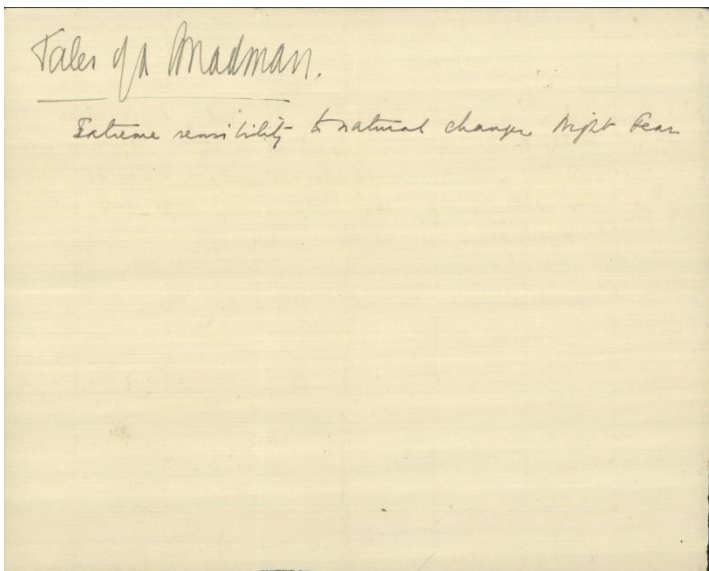 Tales of a Madman.
Extreme sensibility to natural changes Night Fears